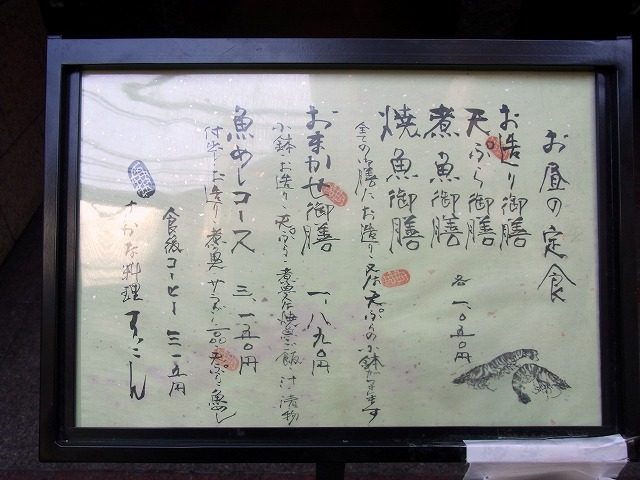 お昼の定食
お造り御膳
天ぷら御膳
煮魚御膳
焼魚御膳
各 一、〇五〇円
全ての御膳にお造り又は天ぷらの小鉢が付きます
おまかせ御膳 一、八九〇円
小鉢・お造り・天ぷら・煮魚又は焼魚・ご飯・汁・漬物
魚めしコース 三、一五〇円
付出し・お造り・煮魚・サラダ・一品・天ぷら・魚めし
食後コーヒー 三一五円
さかな料理